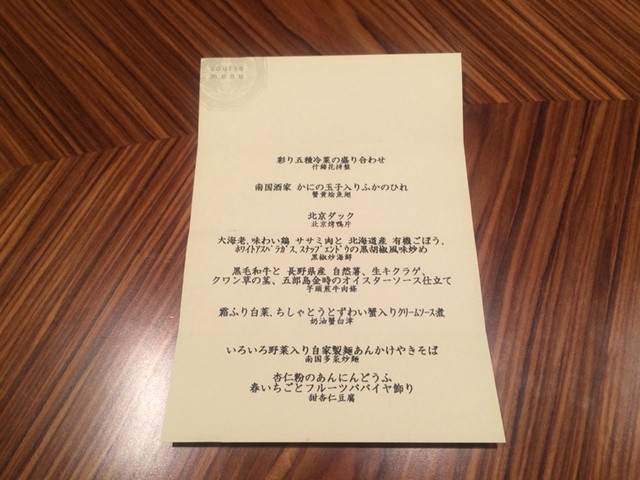 course
menu
彩り五種冷菜の盛り合わせ
什錦花拼盤
南国酒家 かにの玉子入りふかのひれ
蟹黄燴魚翅
北京ダック
北京烤鴨庁
大海老、味わい鶏 ササミ肉と 北海道産 有機ごぼう、
ホワイトアスパラガス、スナップエンドウの黒胡椒風味炒め
黒椒炒海鮮
黒毛和牛と 長野県産 自然薯、生キクラゲ、
クワン草の茎、五郎島金時のオイスターソース仕立て
芋頭煎牛肉條
霜ふり白菜、ちしゃとうとずわい蟹入りクリームソース煮
奶油蟹白津
いろいろ野菜入り自家製麺あんかけやきそば
南国多菜炒麺
杏仁粉のあんにんどうふ
春いちごとフルーツパパイヤ飾り
甜杏仁豆腐